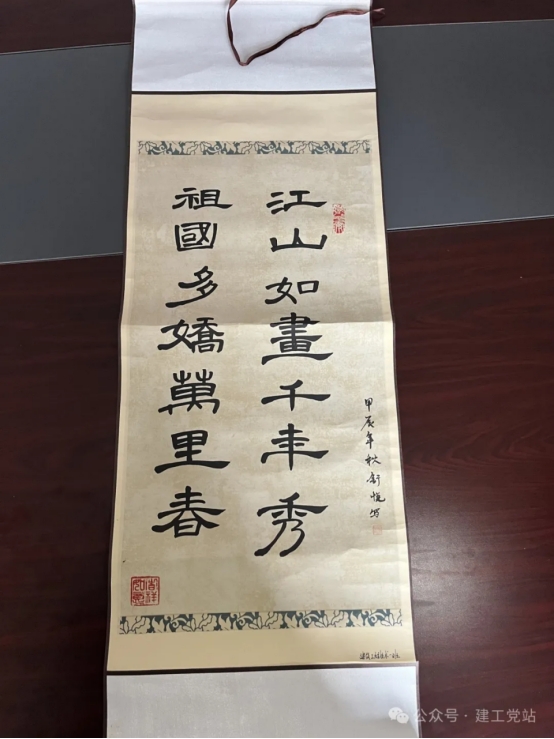 江山如畫千年秀
祖國多嬌萬里春
甲辰年秋舒悦写
吉祥
公众号·建工党站